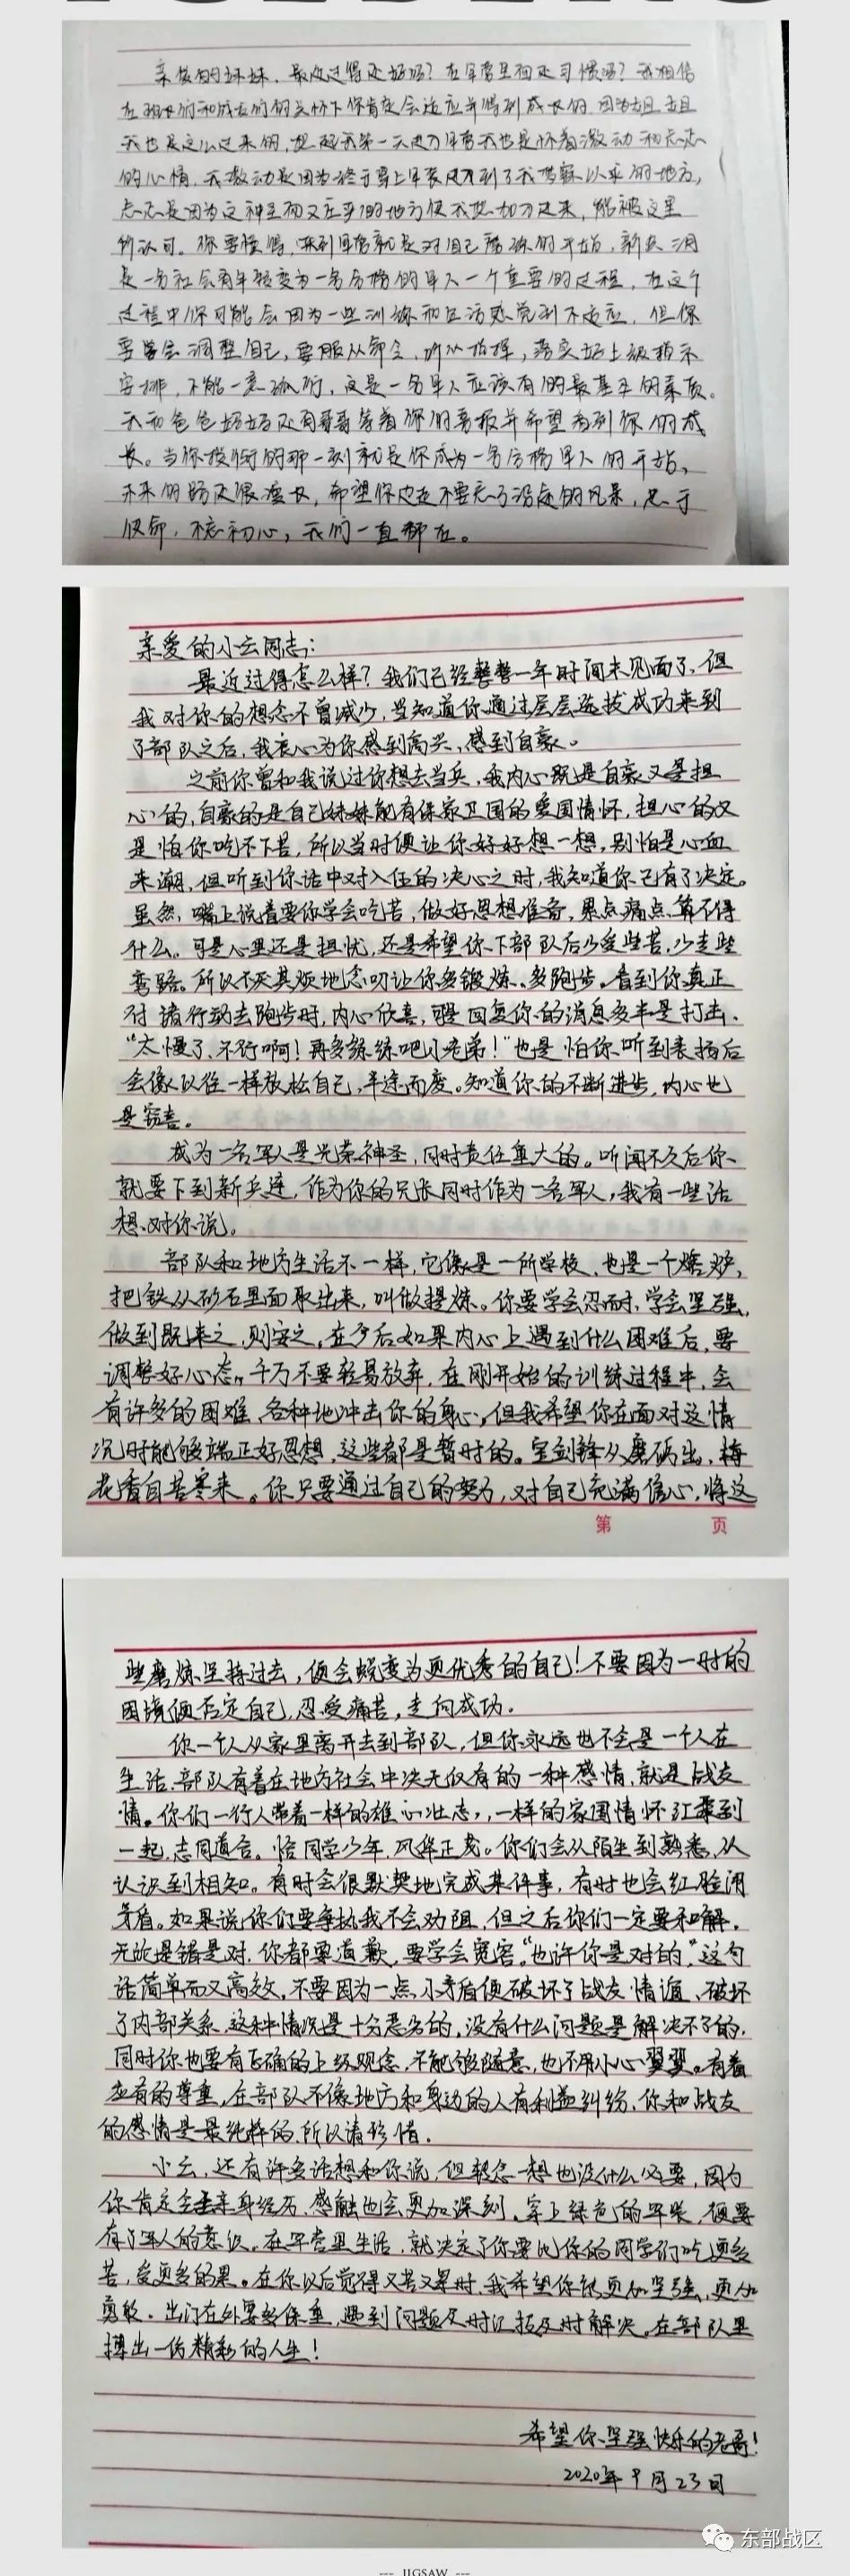 亲爱的妹妹，最近过得还好吗？在军营里面还习惯吗？我相信
在班长们和战友们的关怀下你肯定会适应并得到成长的，因为姐姐
我也是这么过来的，想起我第一天进入军营我也是怀着激动和忐忑
的心情，我激动是因为终于穿上军装是来到了我梦寐以求的地方，
忐忑是因为这神圣而又庄严的地方使我想加入进来，能被这里
所认可。你要懂得，来到军营就是对自己磨练的开始，新兵期
是一名社会青年转变为一名合格的军人一个重要的过程，在这个
过程中你可能会因为一些训练和生活感觉到不适应，但你
要学会调整自己，要服从命令，听从指挥，落实好上级指示
安排，不能一意孤行，这是一名军人应该有的最基本的素质。
我和爸爸妈妈还有哥哥等着你的喜报并希望看到你的成
长。当你授衔的那一刻就是你成为一名合格军人的开始，
未来的路还很漫长，希望你边走不要忘了沿途的风景，忠于
使命，不忘初心，我们一直都在。
亲爱的小云同志：
最近过得怎么样？我们已经整整一年时间未见面了，但
我对你的想念不曾减少，当知道你通过层层选拔成功来到
了部队之后，我衷心为你感到高兴、感到自豪。
之前你曾和我说过你想去当兵，我内心既是自豪又是担
心的，自豪的是自己妹妹能有保家卫国的爱国情怀，担心的又
是怕你吃不下苦，所以当时便让你好好想一想，别怕是心血
来潮，但听到你话中对入伍的决心之时，我知道你已有了决定。
虽然，嘴上说着要你学会吃苦，做好思想准备，累点痛点算不得
什么。可是心里还是担忧，还是希望你下部队后少受些苦，少走些
弯路。所以不厌其烦地念叨让你多锻炼、多跑步。看到你真正
付诸行动去跑步时，内心欣喜，可是回复你的消息多半是打击、
“太慢了、不行啊！再多练练吧小老弟！”也是怕你听到表扬后
会像以往一样放松自己，半途而废。知道你的不断进步，内心也
是窃喜。
成为一名军人是光荣神圣，同时责任重大的。听闻不久后你
就要下到新兵连，作为你的兄长同时作为一名军人，我有一些话
想对你说。
部队和地方生活不一样，它像是一所学校、也是一个熔炉，
把铁从矿石里面取出来，叫做提炼。你要学会忍耐，学会坚强，
做到既来之，则安之。在今后如果内心上遇到什么困难后，要
调整好心态，千万不要轻易放弃，在刚开始的训练过程中，会
有许多的困难，各种地冲击你的身心，但我希望你在面对这情
况时能够端正好思想，这些都是暂时的。宝剑锋从磨砺出，梅
花香自苦寒来。你只要通过自己的努力，对自己充满信心，将这
第 页
些磨炼坚持过去，便会蜕变为更优秀的自己！不要因为一时的
困境便否定自己，忍受痛苦，走向成功。
你一个人从家里离开去到部队，但你永远也不会是一个人在
生活，部队有着在地方社会中决无仅有的一种感情，就是战友
情。你们一行人带着一样的雄心壮志，一样的家国情怀汇聚到
一起，志同道合。恰同学少年，风华正茂。你们会从陌生到熟悉，从
认识到相知。有时会很默契地完成某件事，有时也会红脸闹
矛盾。如果说你们要争执我不会劝阻，但之后你们一定要和解，
无论是错是对，你都要道歉，要学会宽容，“也许你是对的”，这句
话简单而又高效。不要因为一点小矛盾便破坏了战友情谊、破坏
了内部关系，这种情况是十分恶劣的，没有什么问题是解决不了的，
同时你也要有正确的上级观念，不能够随意，也不用小心翼翼。有着
应有的尊重，在部队不像地方和身边的人有利益纠纷，你和战友
的感情是最纯粹的，所以请珍惜。
小云，还有许多话想和你说，但转念一想也没什么必要，因为
你肯定会亲身经历，感触也会更加深刻。穿上绿色的军装，便要
有了军人的意识。在军营里生活，就决定了你要比你的同学们吃更多
苦，受更多的累。在你以后觉得又苦又累时，我希望你能更加坚强，更加
勇敢。出门在外要多保重，遇到问题及时汇报及时解决。在部队里
搏出一份精彩的人生！
希望你坚强快乐的老哥！
2020年9月23日
东部战区
--- JIGSAW ---